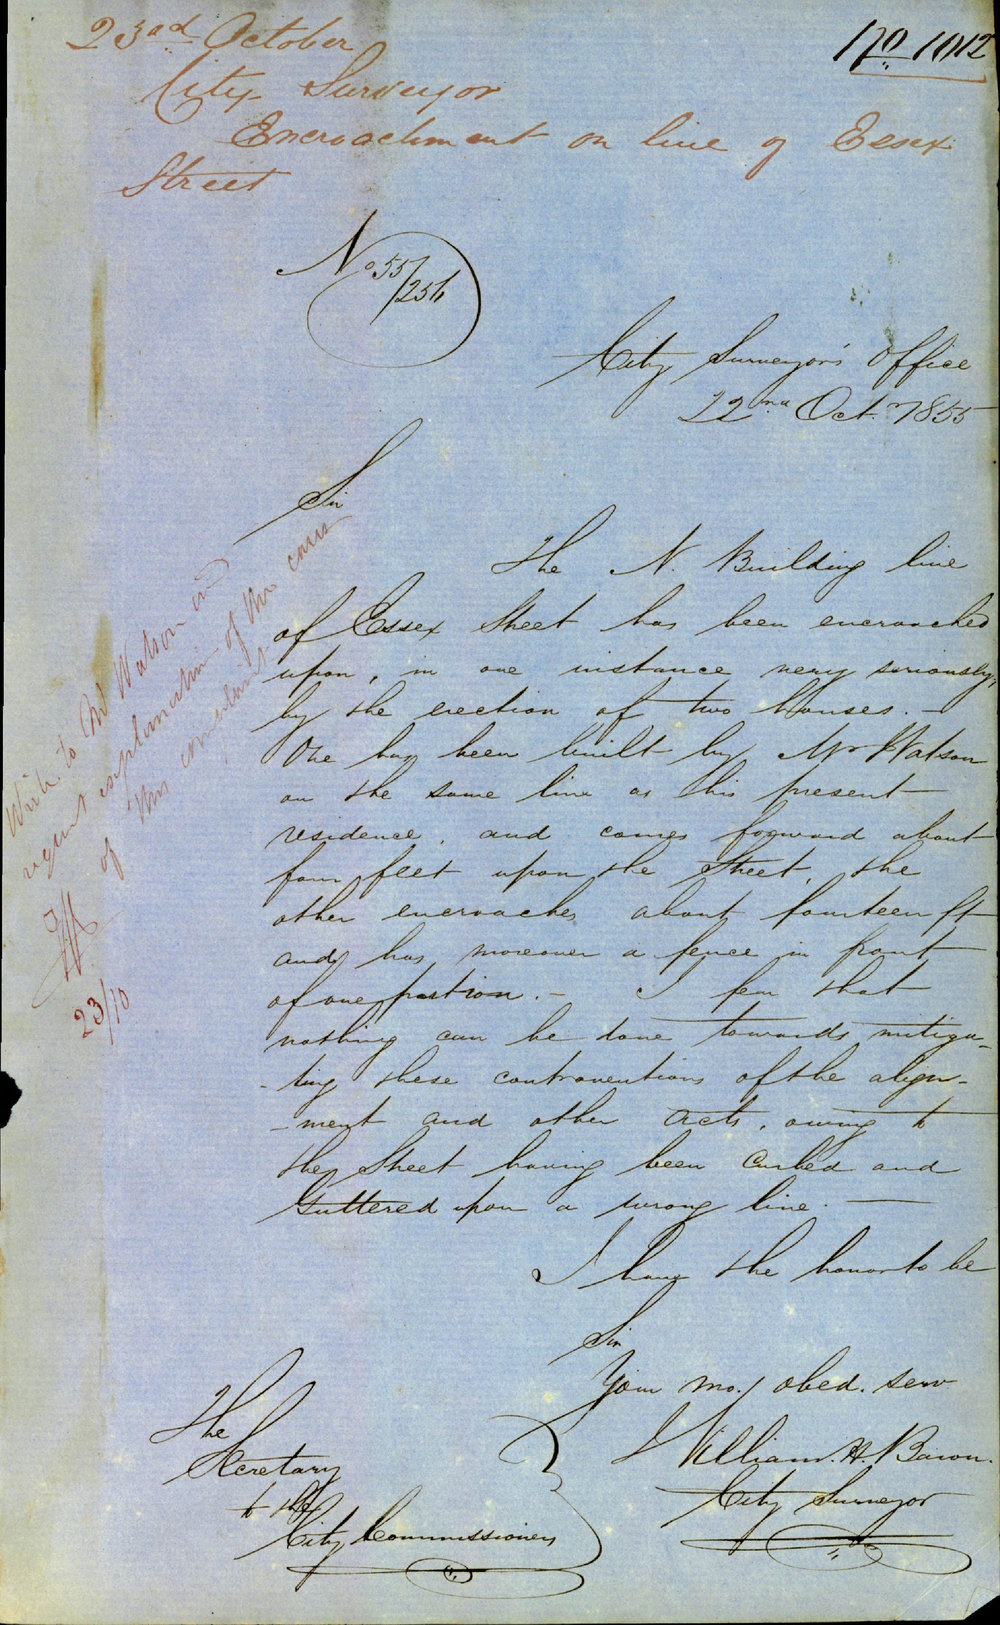 23rd October
No 1012
City Surveyor
Encroachment on line of Essex
Street
No 55/256
City Surveyor's Office
22nd Oct. 1855
Sir
The N. Building line
of Essex Street has been encroached
upon, in one instance very seriously,
by the erection of two houses. –
One has been built by Mr Watson
on the same line as his present
residence, and comes forward about
four feet upon the Street, the
other encroaches about fourteen ft
and has moreover a fence in front
of one portion. – I fear that
nothing can be done towards mitiga-
-ting these contraventions of the align-
-ment and other Acts, owing to
the Street having been Curbed and
Guttered upon a wrong line. –
I have the honor to be
Sir
Your mo. obed. serv
William. H. Baron.
City Surveyor
The
Secretary
to the
City Commissioners
Write to Mr Watson and
request explanation of the cause
of this complaint
23/10